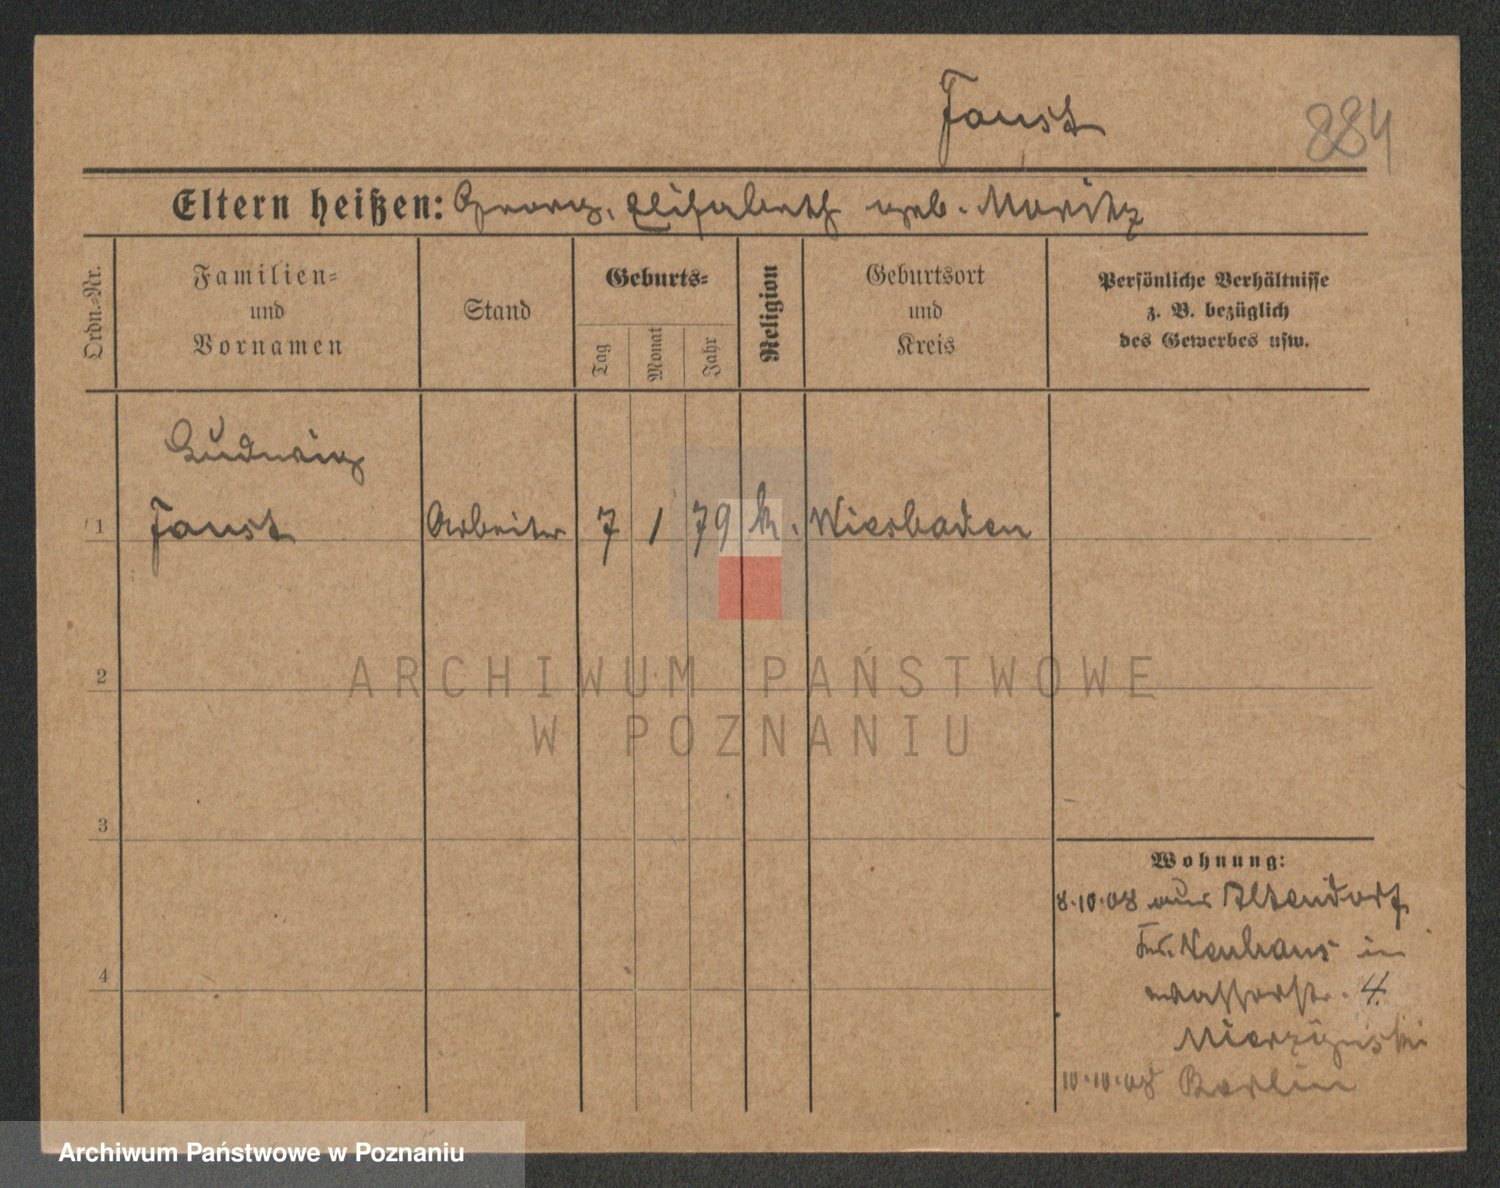 Faust
884
Eltern heißen: Georg, Elisabeth geb. Moritz
Ordn.-Nr.
Familien-
und
Vornamen
Stand
Geburts-
Tag
Monat
Jahr
Religion
Geburtsort
und
Kreis
Persönliche Verhältnisse
z. B. bezüglich
des Gewerbes usw.
Ludwig
1 Faust Arbeiter 7 1 79 k. Wiesbaden
2
3
4
ARCHIWUM PAŃSTWOWE
W POZNANIU
Wohnung:
8.10.08 aus Altendorf
Krs. Neuhaus in
Wasserstr. 4.
10.10.08 Berlin
Archiwum Państwowe w Poznaniu